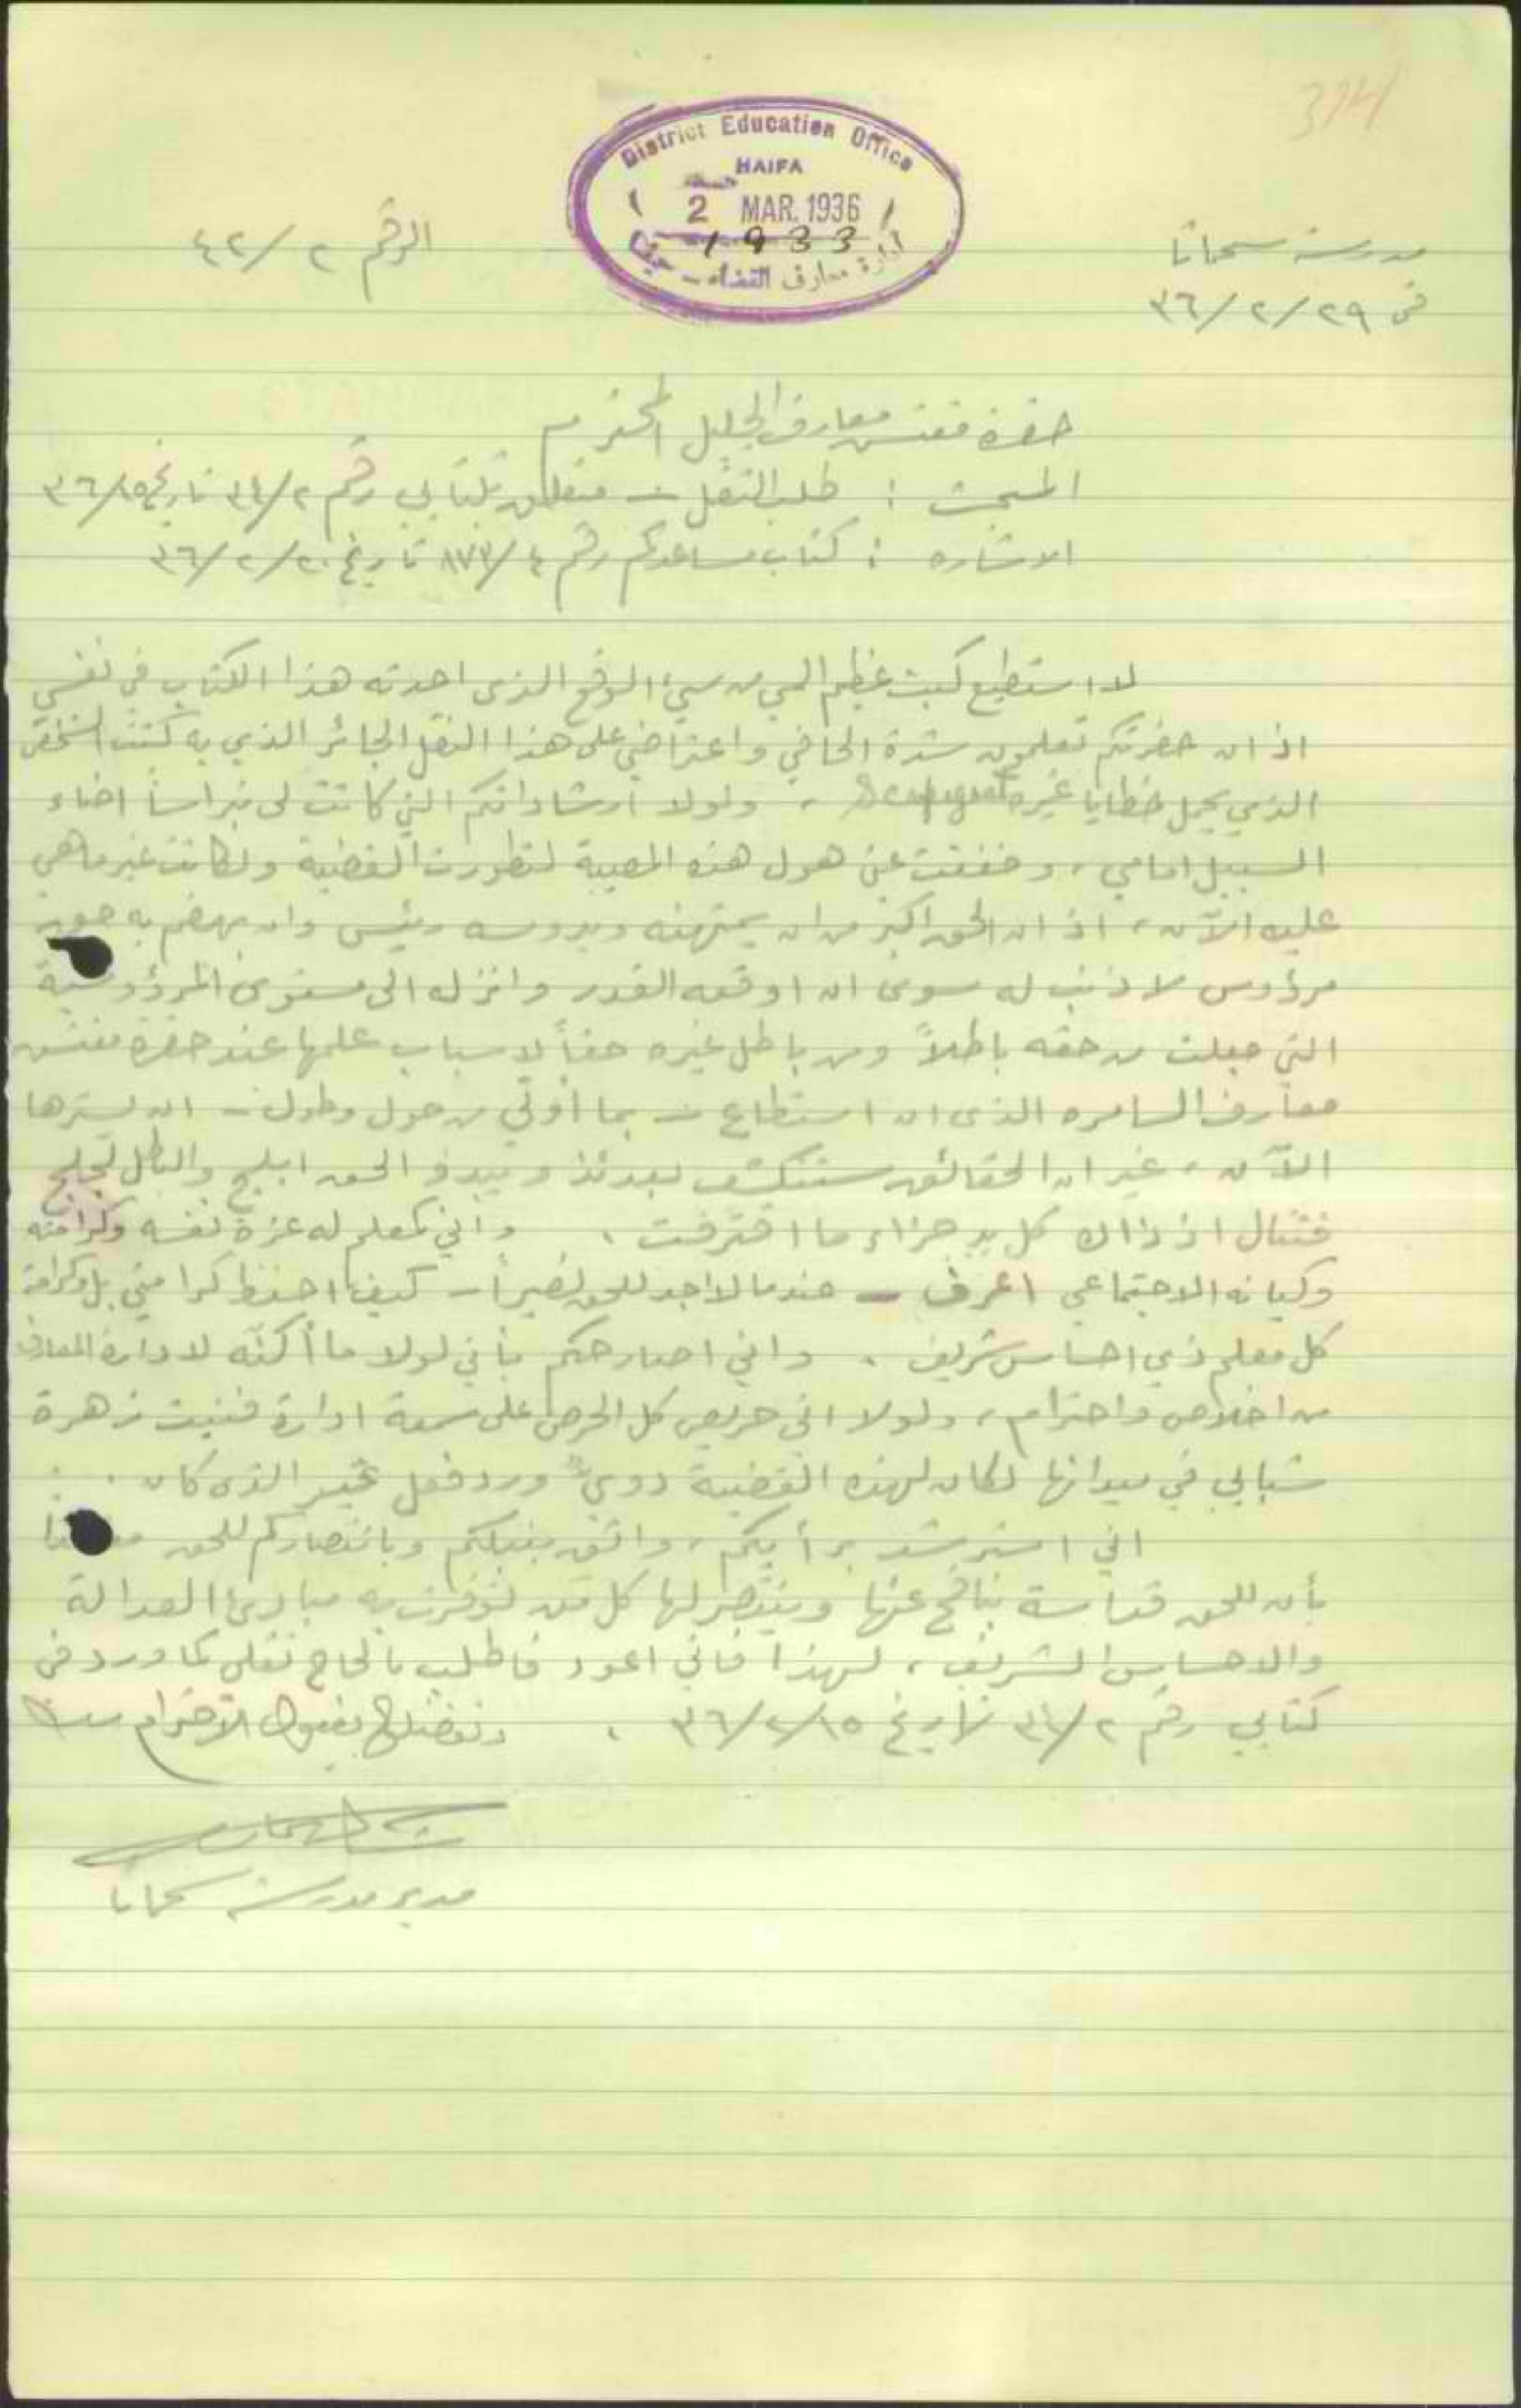 374
District Education Office
HAIFA
2 MAR. 1936
1933
ادارة معارف القضاء - حيفا
مدرسة سحماتا
الرقم ٢/٤٢
في ٢٩/٢/٣٦
حضرة مفتش معارف الجليل المحترم
المبحث : طلب النقل - متعلق بكتابي رقم ٣٤/٢ تاريخ ٣٦/١٥
الاشاره : كتاب مساعدكم رقم ٨٧٧/٤ تاريخ ٣٦/٢/٢٠
لا استطيع كبت عظيم المي من سيء الوقع الذي احدثه هذا الكتاب في نفسي
اذ ان حضرتكم تعلمون شدة الحافي واعتراضي على هذا النقل الجائر الذي به كنت الشخص
الذي يحمل خطايا غيره Scapegoat ، ولولا ارشاداتكم التي كانت لي نبراساً اضاء
السبيل امامي ، وخففت عني هول هذه المصيبة لتطورت القضية ولكانت غير ما هي
عليه الآن ، اذ ان الحق اكبر من ان يمتهنه ويدوسه رئيس وان يهضم به حقوق
مرؤوس لا ذنب له سوى ان اوقعه القدر وانزله الى مستوى المرؤوسية
التي جعلت من حقه باطلاً ومن باطل غيره حقاً لاسباب علمها عند حضرة مفتش
معارف السامره الذي ان استطاع - بما أوتي من حول وطول - ان يسترها
الآن ، غير ان الحقائق ستنكشف بعدئذ ويبدو الحق ابلج والباطل لجلج
فتنال اذ ذاك كل يد جزاء ما اقترفت . واني كمعلم له عزة نفسه وكرامته
وكيانه الاجتماعي اعرف - عندما لا اجد للحق نصيراً - كيف احفظ كرامتي بل وكرامة
كل معلم ذي احساس شريف . واني اصارحكم بأني لولا ما أكنّه لادارة المعارف
من اخلاص واحترام ، ولولا اني حريص كل الحرص على سمعة ادارة فنيت زهرة
شبابي في ميدانها لكان لهذه القضية دويٌّ ورد فعل غير الذي كان .
اني استرشد برأيكم ، واثق بنبلكم وبانتصاركم للحق
بأن للحق قداسة ينافح عنها وينتصر لها كل من توفرت به مبادئ العدالة
والاحساس الشريف ، لهذا فاني اعود فاطلب بالحاح نقلي كما ورد في
كتابي رقم ٣٤/٢ تاريخ ٣٦/٢/١٥ . وتفضلوا بقبول الاحترام
مدير مدرسة سحماتا